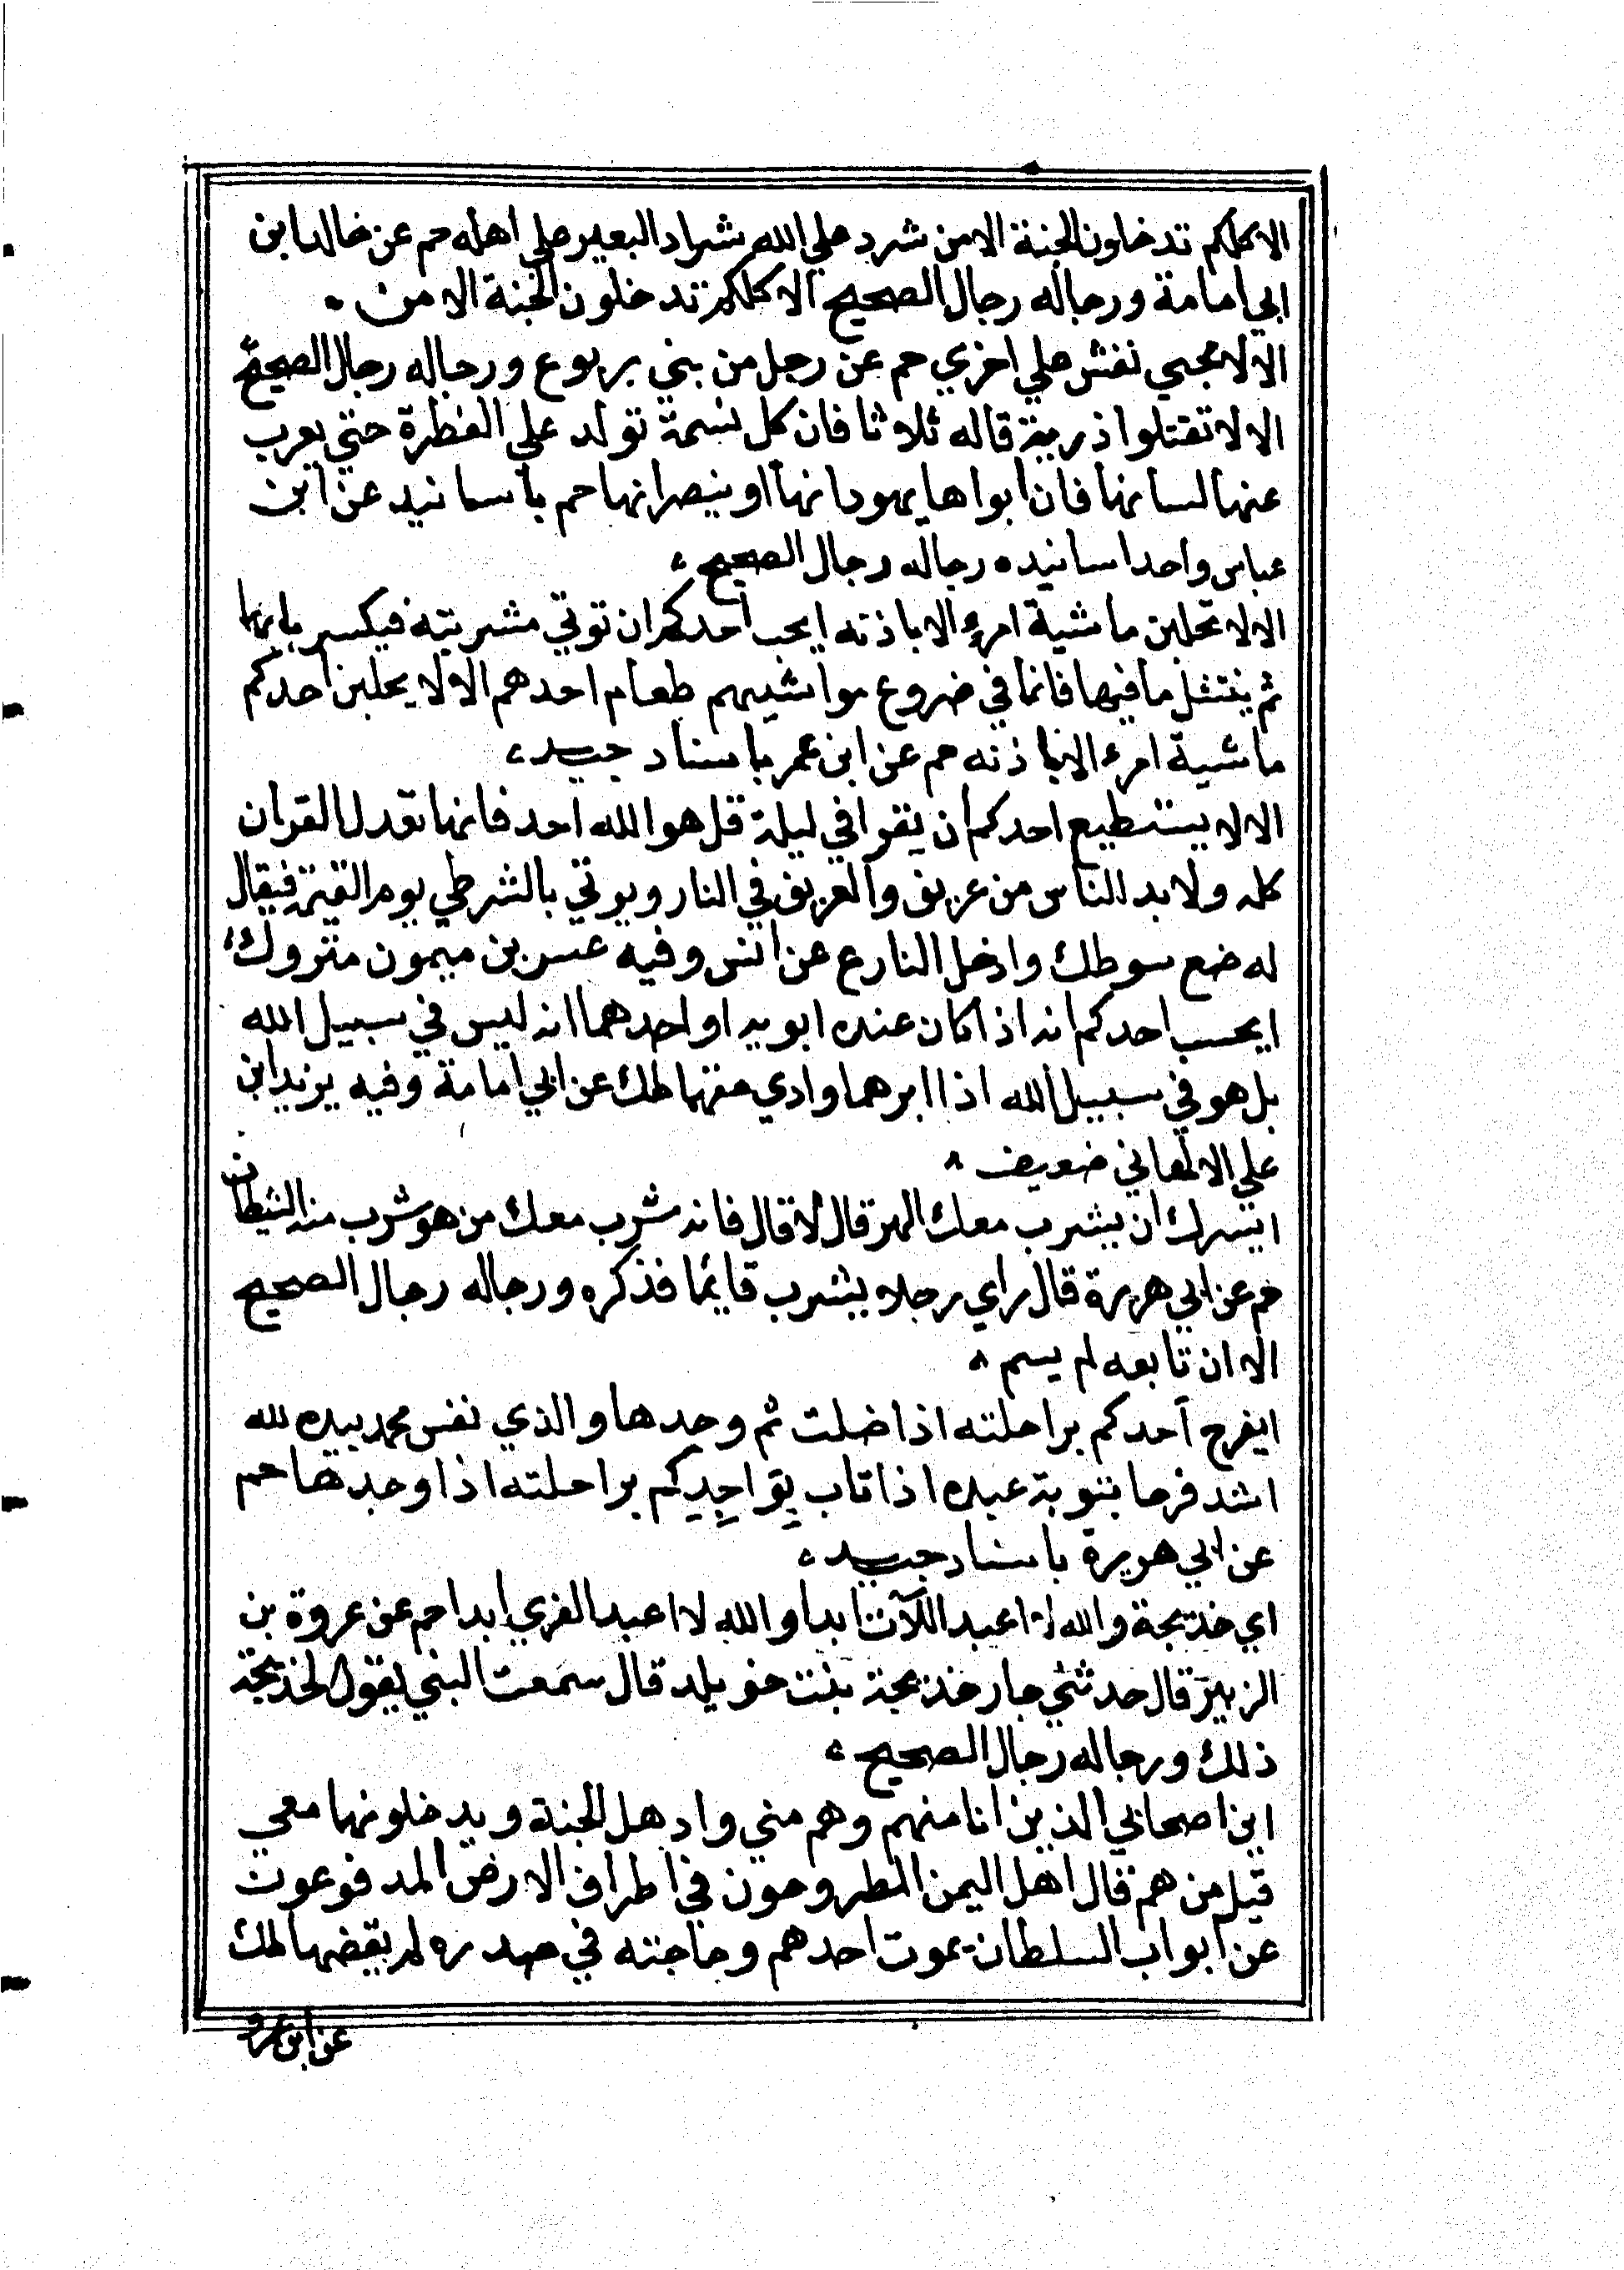 الا كلكم تدخلون الجنة الا من شرد علي الله شراد البعير علي اهله حم عن خالد ابن
ابي امامة ورجاله رجال الصحيح الا كلكم تدخلون الجنة الا من
الا لا تجبي نفس علي اخري حم عن رجل من بني يربوع ورجاله رجال الصحيح
الا لا تقتلوا ذرية قاله ثلاثا فان كل نسمة تولد علي الفطرة حتي يعرب
عنها لسانها فان ابواها يهودانها او ينصرانها حم باسانيد عن ابن
عباس واحد اسانيده رجاله رجال الصحيح
الا لا تحلبن ماشية امرء الا باذنه ايحب احدكم ان توتي مشربته فيكسر بابها
ثم ينتثل ما فيها فانما في ضروع مواشيهم طعام احدهم الا لا يحلبن احدكم
ماشية امرء الا باذنه حم عن ابن عمر باسناد جيد
الا لا يستطيع احدكم ان يقرا في ليلة قل هو الله احد فانها تعدل القران
كله ولا بد للناس من عريف والعريف في النار ويوتي بالشرطي يوم القيمة فيقال
له ضع سوطك وادخل النار ع عن انس وفيه عسر بن ميمون متروك
ايحسب احدكم انه اذا كان عنده ابويه او احدهما انه ليس في سبيل الله
بل هو في سبيل الله اذا ابرهما وادي عنهما طك عن ابي امامة وفيه يزيد ابن
علي الالهاني ضعيف
ايسرك ان يشرب معك الهر قال لا قال فانه شرب معك من هو شرب منه الشيطان
حم عن ابي هريرة قال راي رجلا يشرب قايما فذكره ورجاله رجال الصحيح
الا ان تابعه لم يسم
ايفرح احدكم براحلته اذا ضلت ثم وجدها والذي نفس محمد بيده لله
اشد فرحا بتوبة عبده اذا تاب بواجدكم براحلته اذا وجدها حم
عن ابي هريرة باسناد جيد
اي خديجة والله لا اعبد اللات ابدا والله لا اعبد العزي ابدا حم عن عروة بن
الزبير قال حدثني جار خديجة بنت خويلد قال سمعت النبي يقول لخديجة
ذلك ورجاله رجال الصحيح
اين اصحابي الذين انا منهم وهم مني وادهل الجنة ويدخلونها معي
قيل من هم قال اهل اليمن المطروحون في اطراف الارض المدفوعون
عن ابواب السلطان يموت احدهم وحاجته في صدره لم يقضها طك
عن ابن عمرو